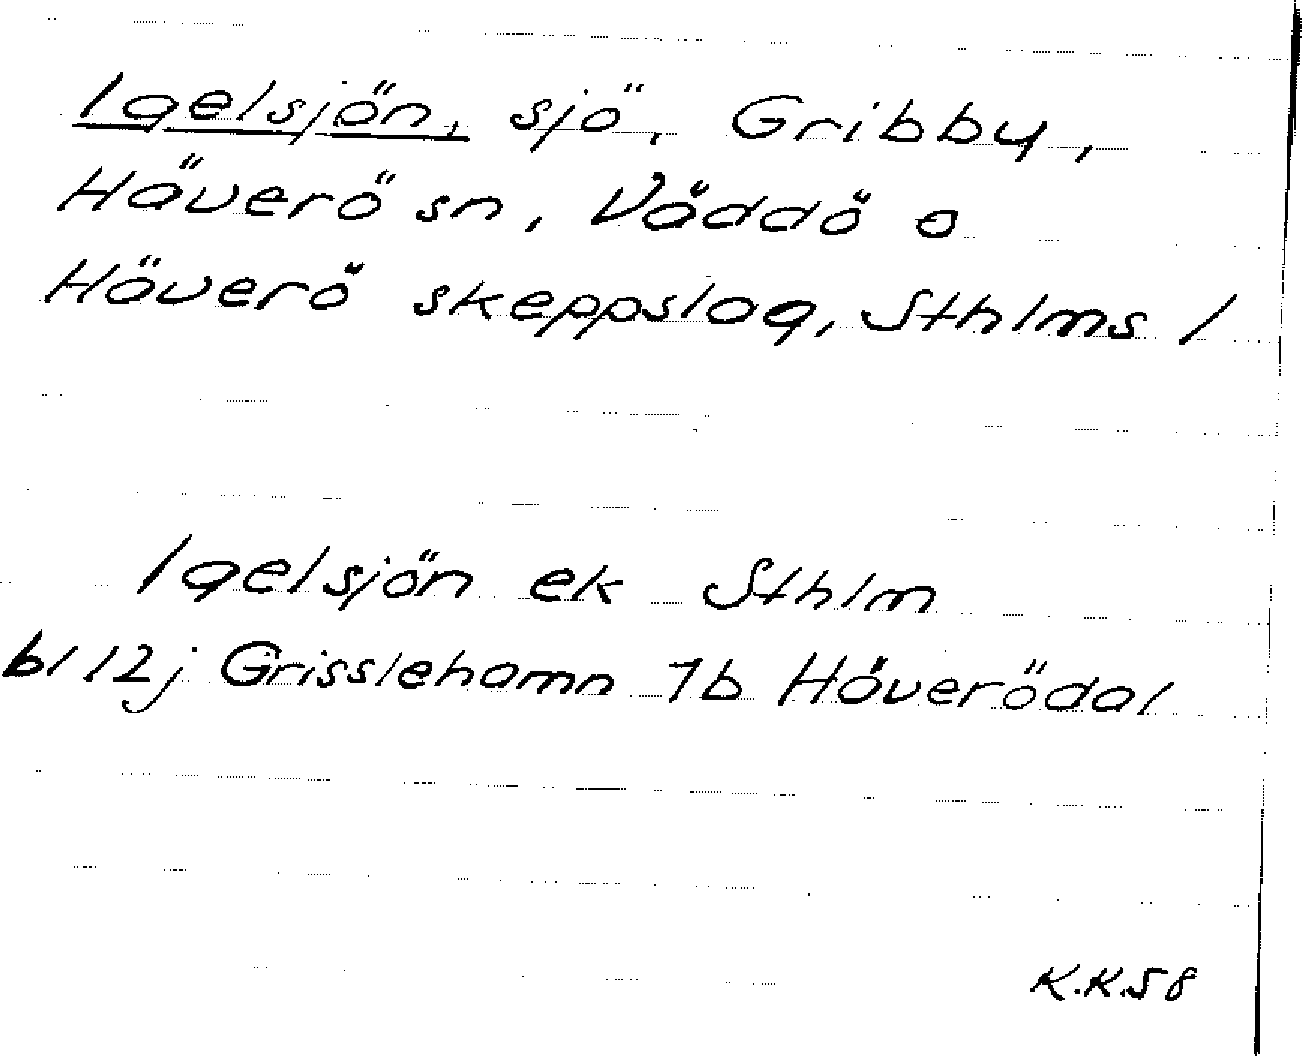 Igelsjön, sjö, Gribby,
Häverö sn, Väddö o
Häverö skeppslag, Sthlms l
Igelsjön ek Sthlm
bl 12j Grisslehamn 7b Häverödal
K.K.58